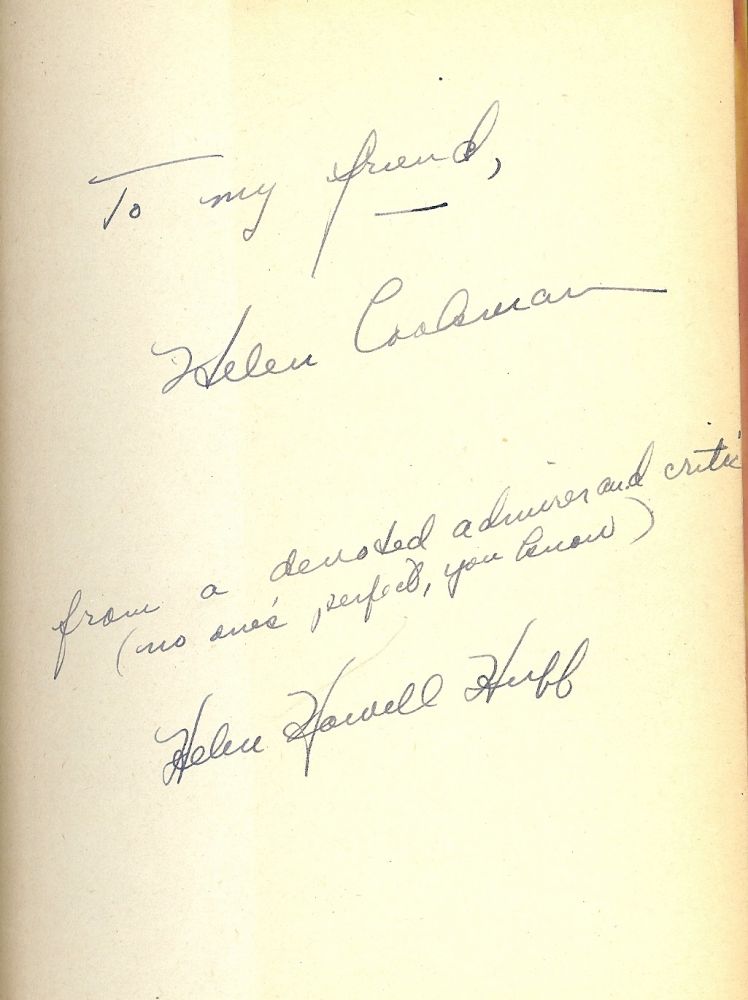 To my friend,
Helen Cookman
from a devoted admirer and critic
(no one's perfect, you know)
Helen Howell Huff